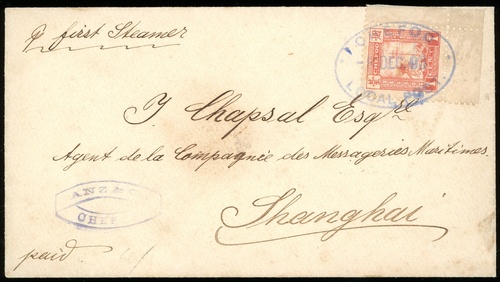 p first Steamer
LOCAL
DEC
J. Chapsal Esqre
Agent de la Compagnie des Messageries Maritimes
Shanghai
ANZ & C
CHEF
paid